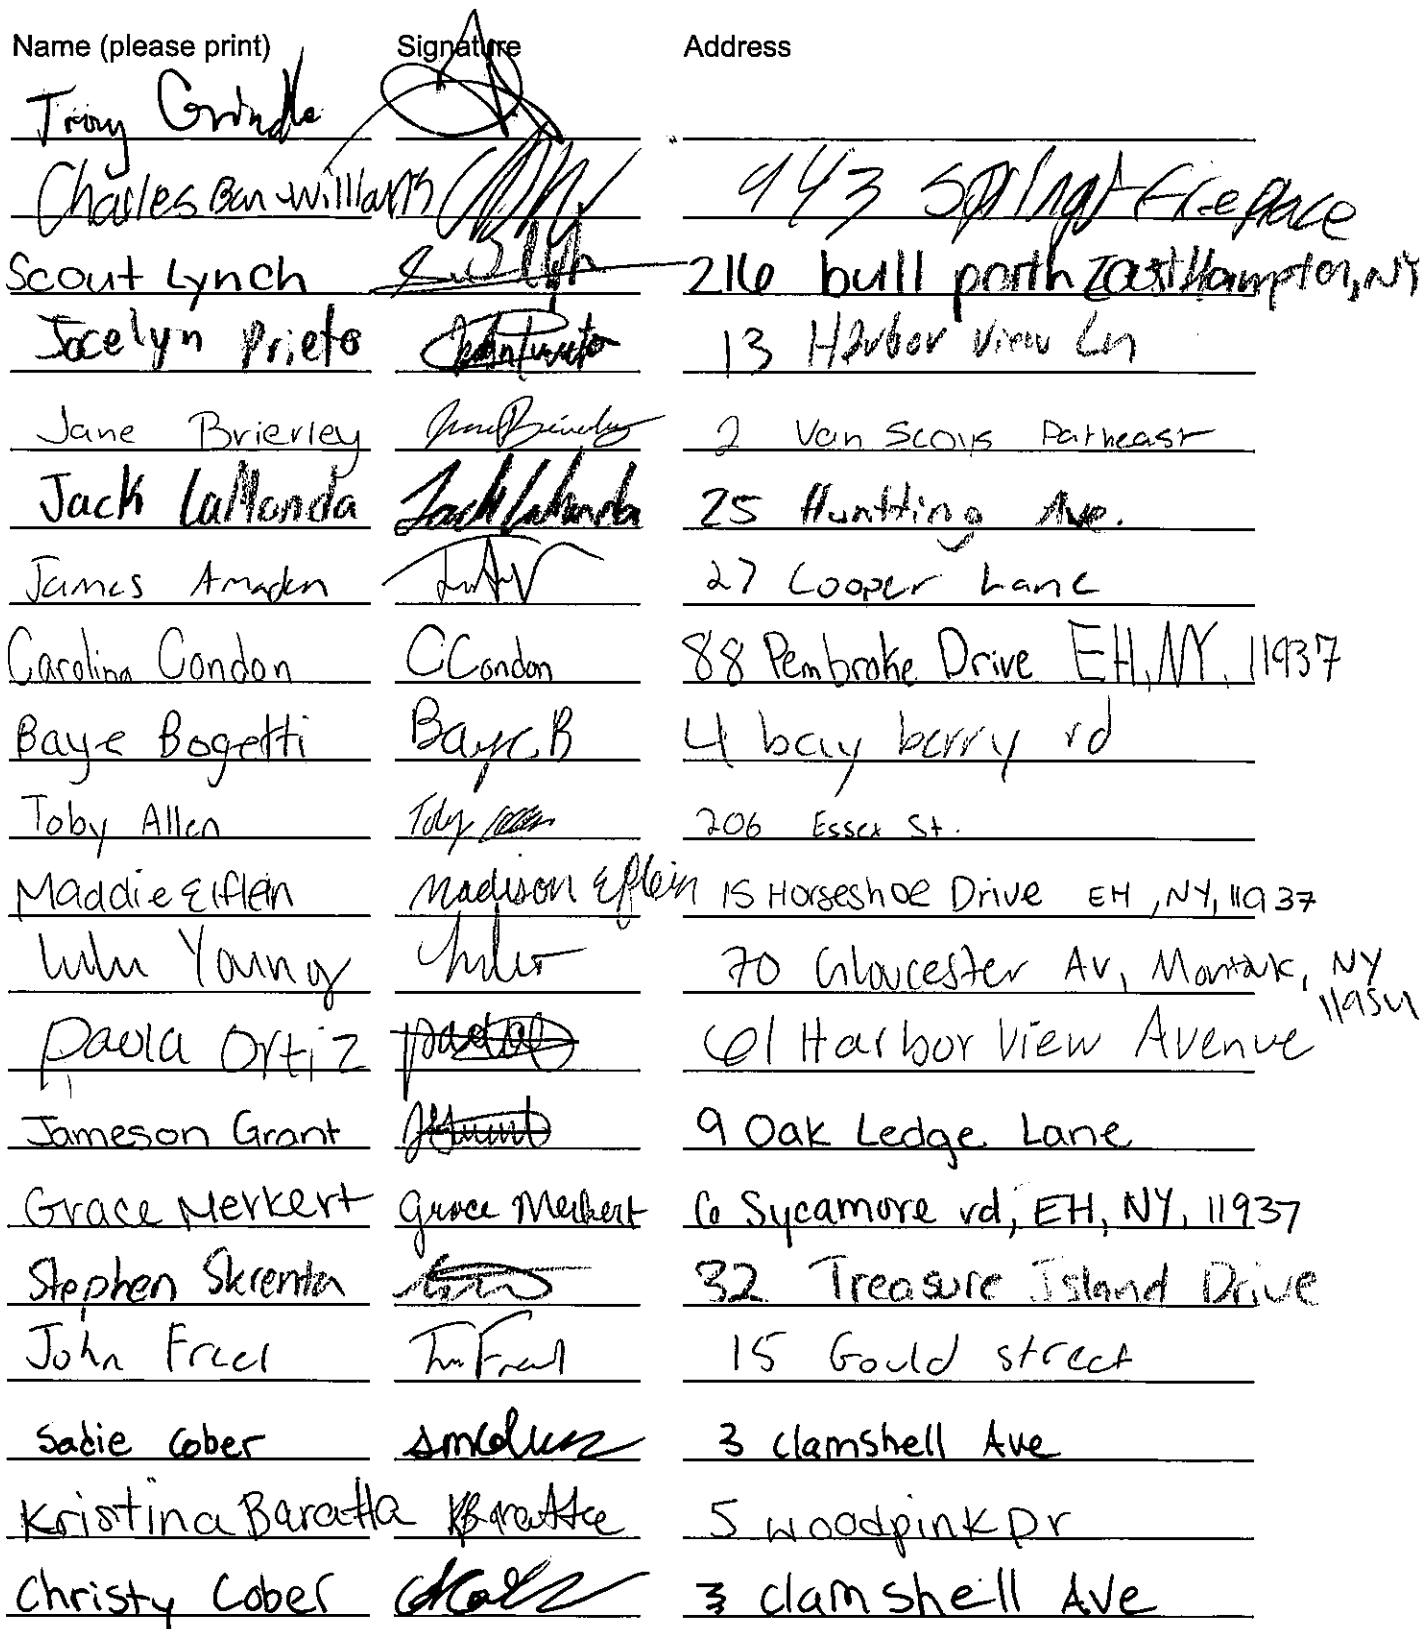 Name (please print) Signature Address
Troy Grindle
Charles Ban-Williams 943 Springs Fireplace
Scout Lynch 216 bull path East Hampton, NY
Jocelyn Prieto 13 Harbor View Ln
Jane Brierley Jane Brierley 2 Van Scoys Path east
Jack LaMonda Jack LaMonda 25 Huntting Ave.
James Amaden 27 Cooper Lane
Carolina Condon CCondon 88 Pembroke Drive EH, NY, 11937
Baye Bogetti Baye B 4 bay berry rd
Toby Allen Toby 206 Essex St.
Maddie Eiflein Madison Eflein 15 Horseshoe Drive EH, NY, 11937
Lulu Young Lulu 70 Gloucester Av, Montauk, NY
11954
Paola Ortiz 61 Harbor View Avenue
Jameson Grant 9 Oak Ledge Lane
Grace Merkert Grace Merkert 6 Sycamore rd, EH, NY, 11937
Stephen Skrenta 32 Treasure Island Drive
John Freel 15 Gould street
Sadie Cober 3 clamshell Ave
Kristina Baratta KBaratta 5 woodpink Dr
Christy Cober 3 clamshell Ave